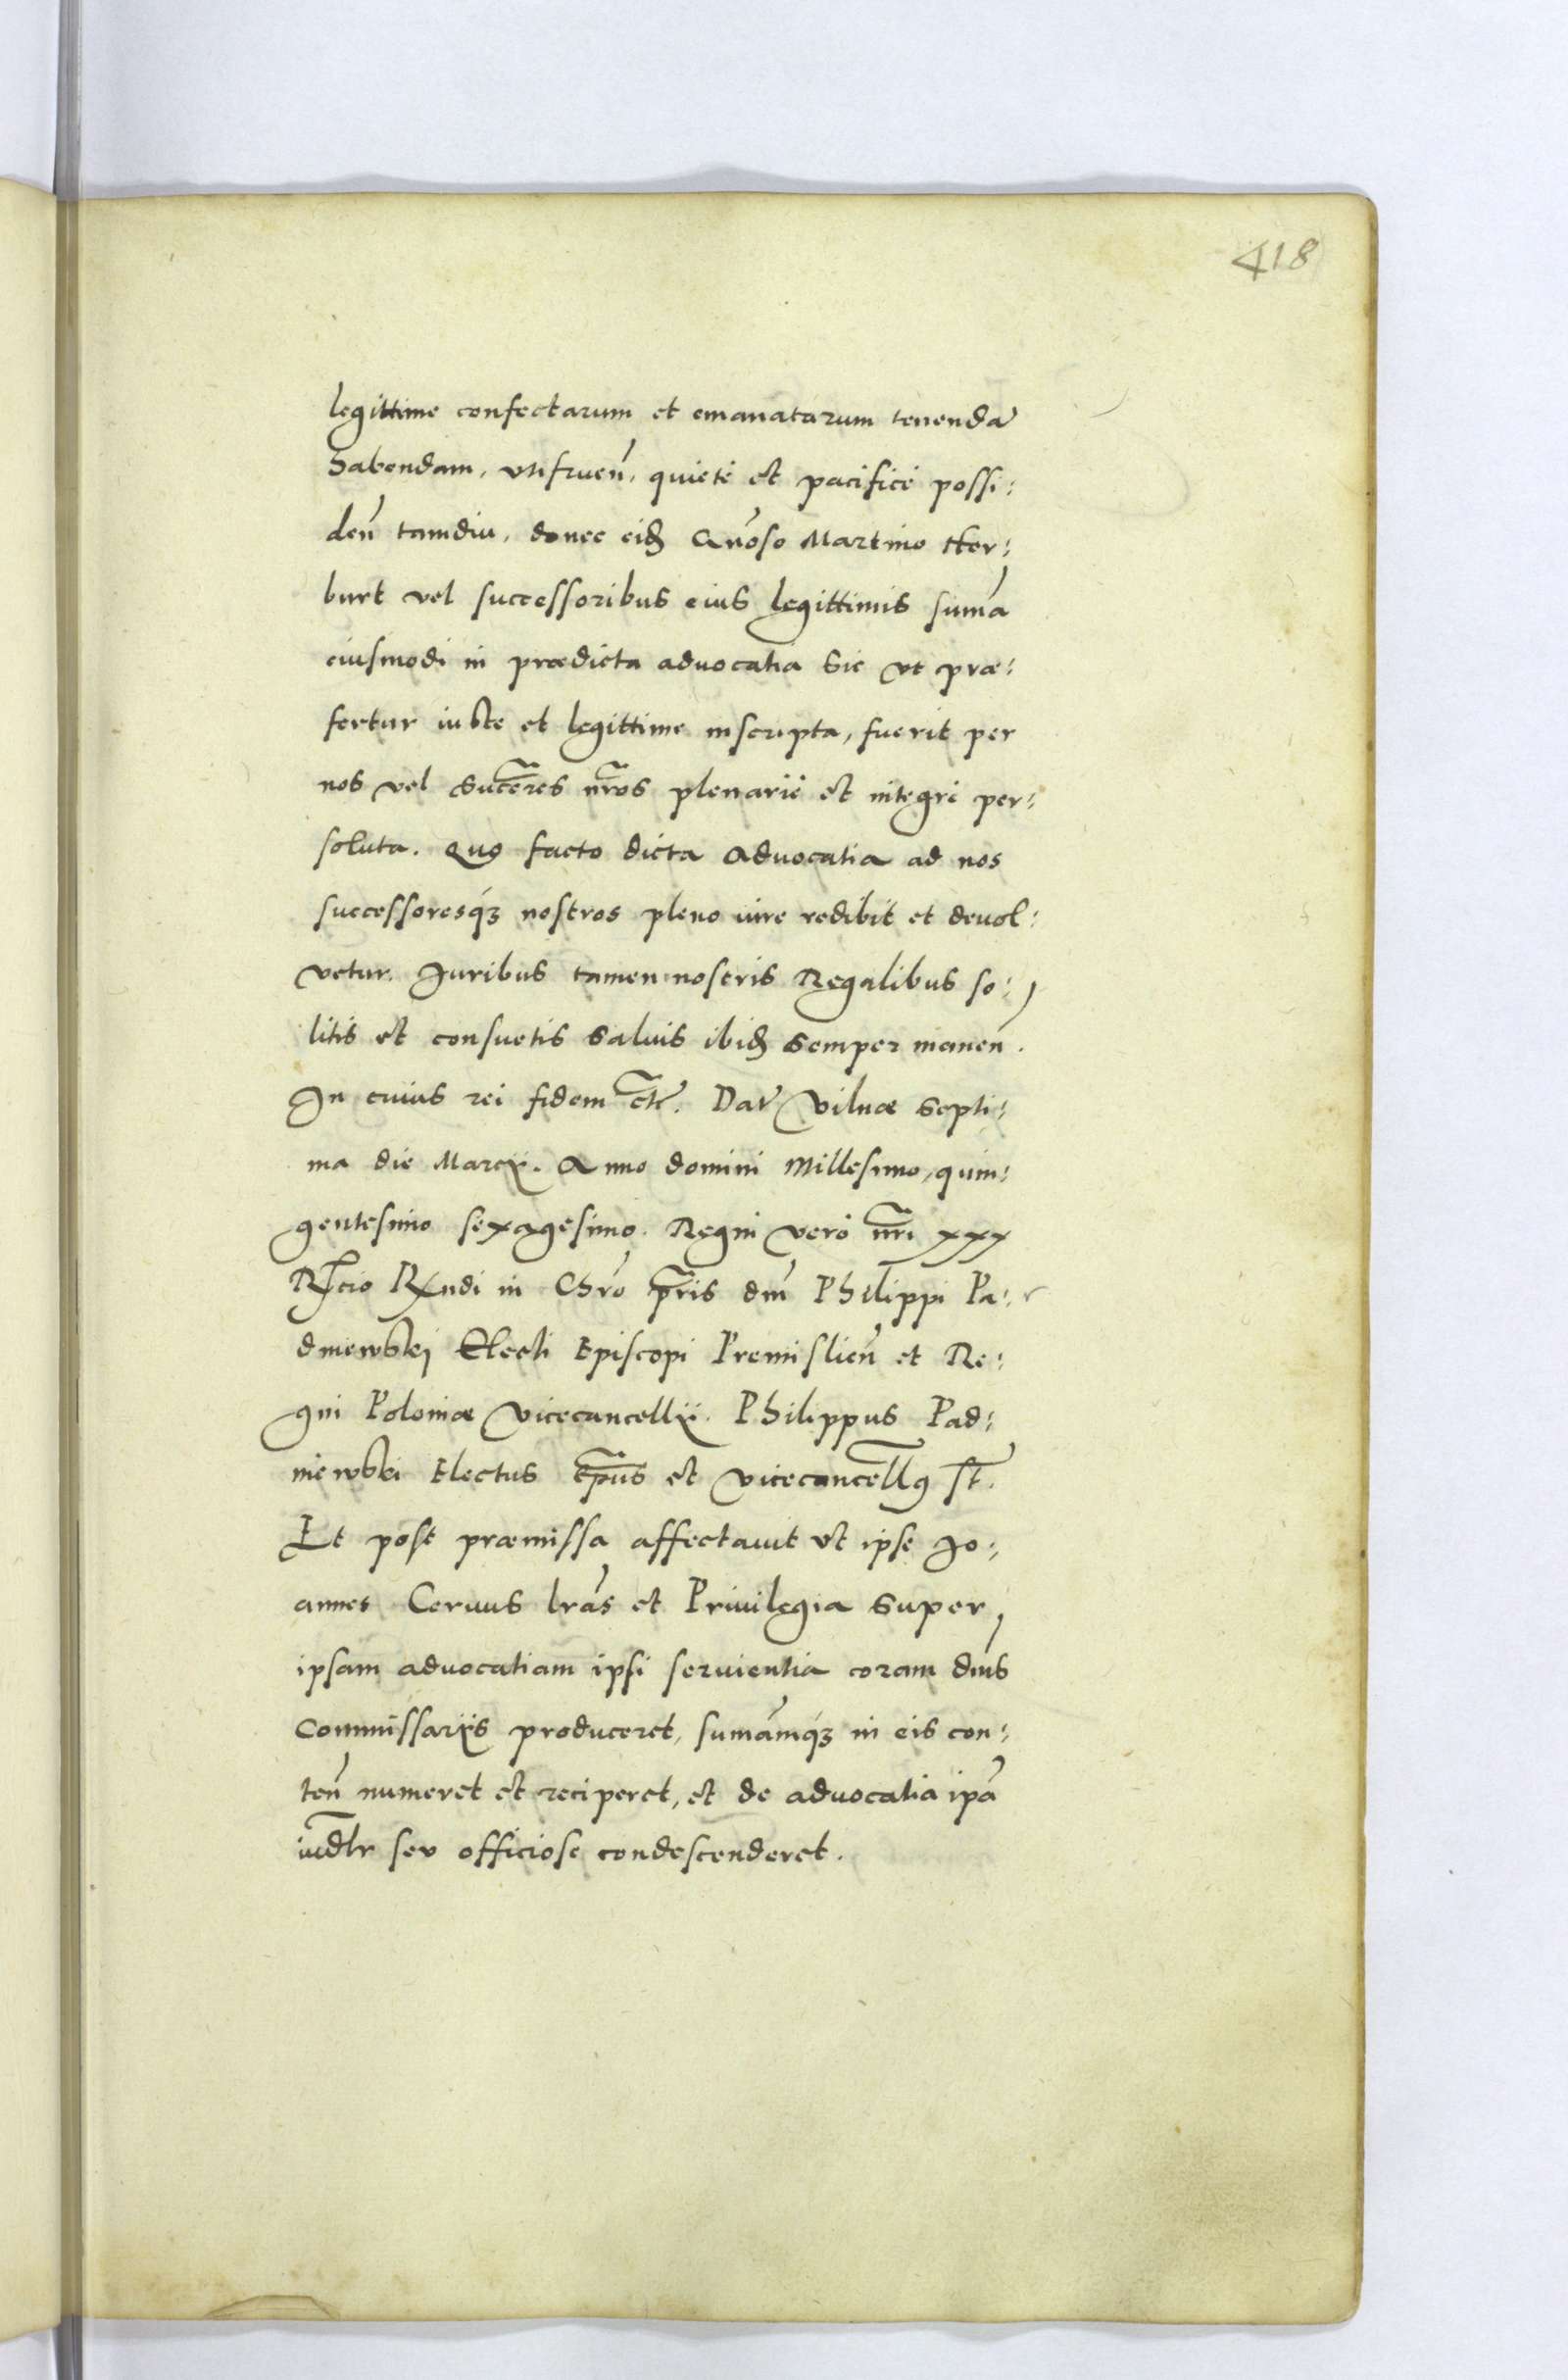 418
legittime confectarum et emanatarum tenendā
habendam, vtifrueñ, quietè et pacificè possi:
deñ tamdiu, donec eidꝫ Gñoso Martino Her:
burt vel successoribus eius legittimis sum̄a
eiusmodi in prædicta aduocatia sic vt præ:
fertur iuste et legittime inscripta, fuerit per
nos vel succeres nr̃os plenariè et integrè per:
soluta. Quo facto dicta Aduocatia ad nos
successoresq́ꝫ nostros pleno iure redibit et deuol:
vetur. Juribus tamen nostris Regalibus so:
litis et consuetis saluis ibidꝫ semper maneñ.
In cuius rei fidem etc̃. Dat̃ Vilnæ septi:
ma die Marcÿ. Anno domini Millesimo, quin:
gentesimo sexagesimo. Regni verò nr̃i xxx
Rẽcio Rxndi in Chr̃o pr̃is dm̃ Philippi Pa:
dniewskj Electi Episcopi Premislieñ et Re:
gni Poloniæ Vicecancellÿ. Philippus Pad:
niewski Electus Ep̃us et vicecancellꝰ s̃t.
Et post præmissa affectauit vt ipse Jo:
annes Ceruus lr̃as et Priuilegia super
ipsam aduocatiam ipsi seruientia coram dm̃s
Commissarÿs produceret, sum̃amq́ꝫ in eis con:
teñ numeret et reciperet, et de aduocatia ip̃a
iudlr̃ seu officiose condescenderet.